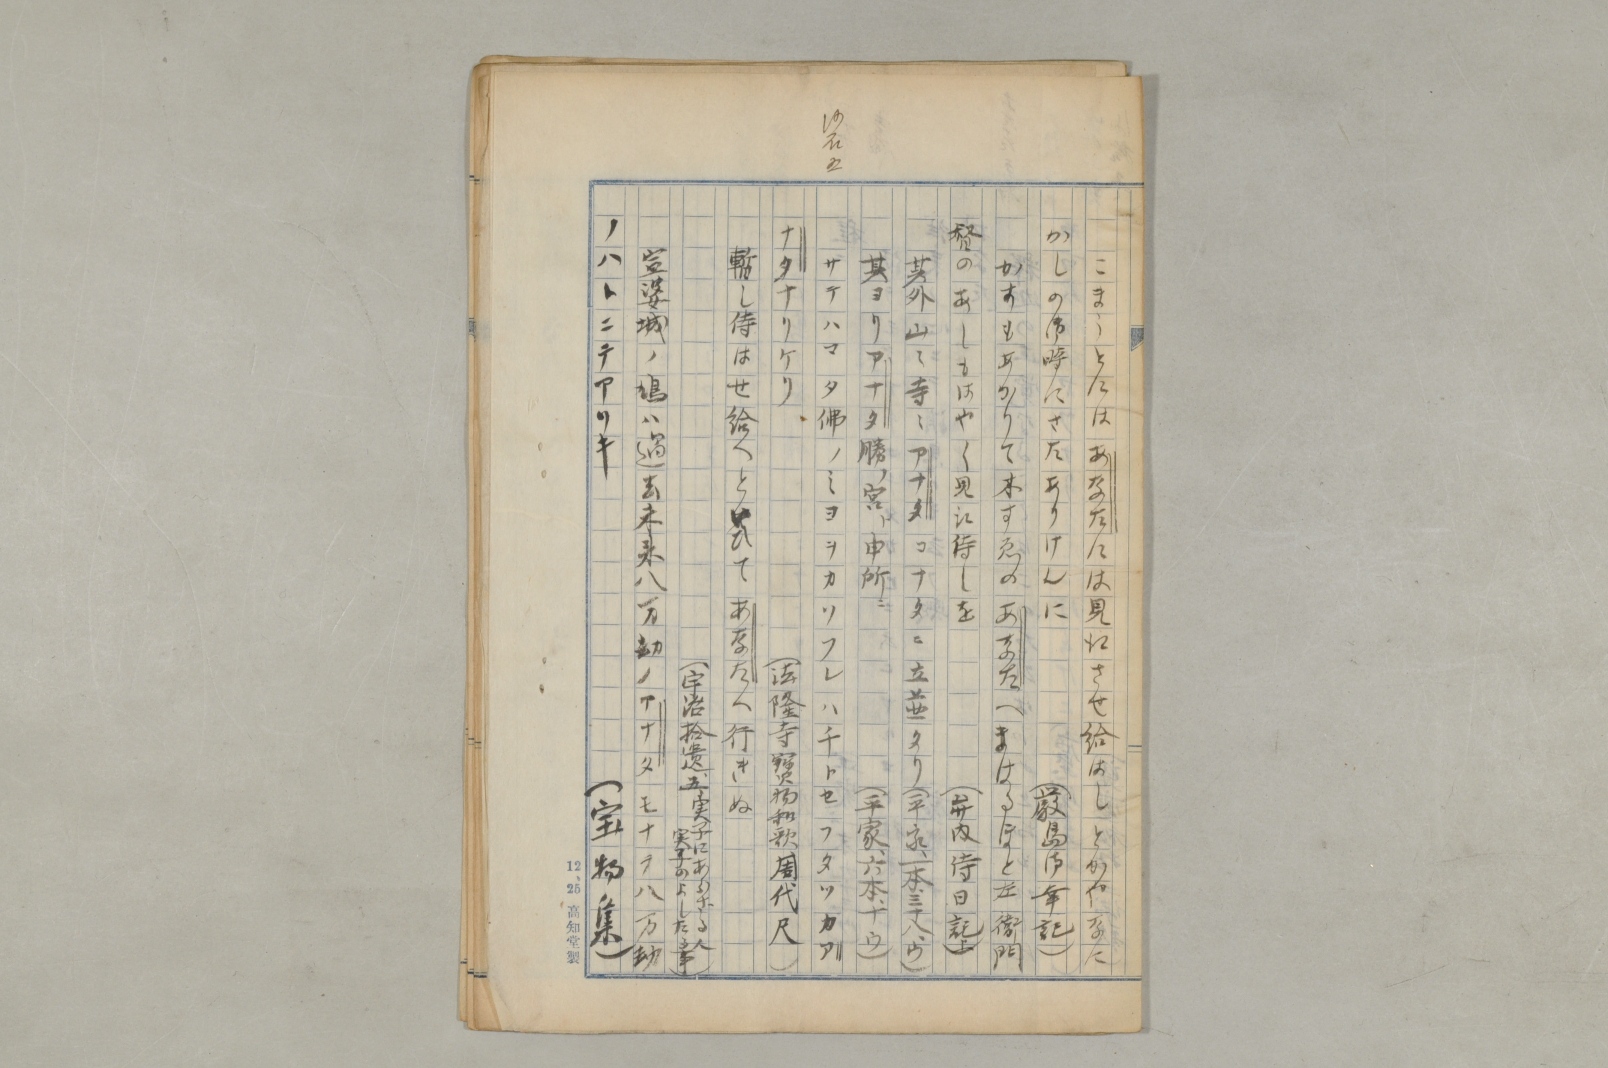 沙石五
こまゝとにはあなたには見にさせ給はしとかやなに
かしの御時にさたありけんに
(嚴島御幸記)
かすもあかりて木すゑのあなたへまはるほと左衛門
督のあしもはやく見に侍しを
(弁内侍日記上)
其外山々寺々アナタコナタニ立並タリ(平家、一本、三十八ウ)
其ヨリアナタ勝ノ宮ト申所ニ
(平家、六本、十ウ)
サテハマタ佛ノミヨヲカソフレハチトセフタツカア
ナタナリケリ
(法隆寺寶物和歌周代尺)
暫し侍はせ給へとひてあなたへ行きぬ
(宇治拾遺、五、実子にあらざる人実子のよしした事)
宣婆城ノ鳩ハ過去未来八万劫ノアナタモナテ八万劫
ノハトニテアリキ
(宝物集)
12、25 高知堂製